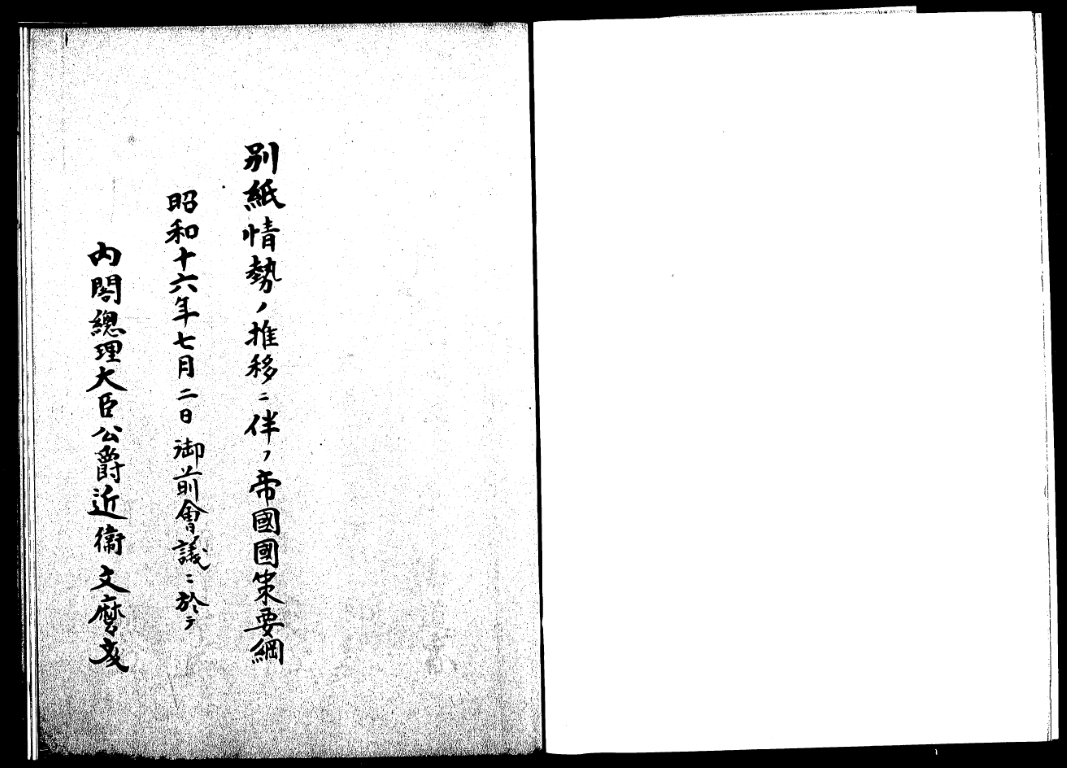 別紙情勢ノ推移ニ伴フ帝國國策要綱
昭和十六年七月二日御前會議ニ於テ
内閣總理大臣公爵近衞文麿